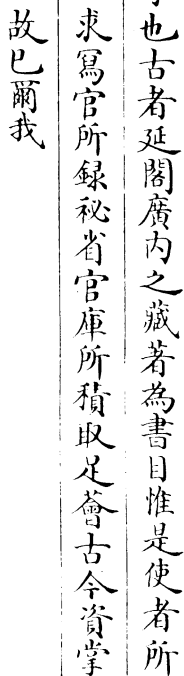 也古者延閣廣內之藏著為書目惟是使者所
求寫官所録秘省官庫所積取足薈古今資掌
故已爾我